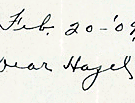 Feb. 20-'09
Dear Hazel